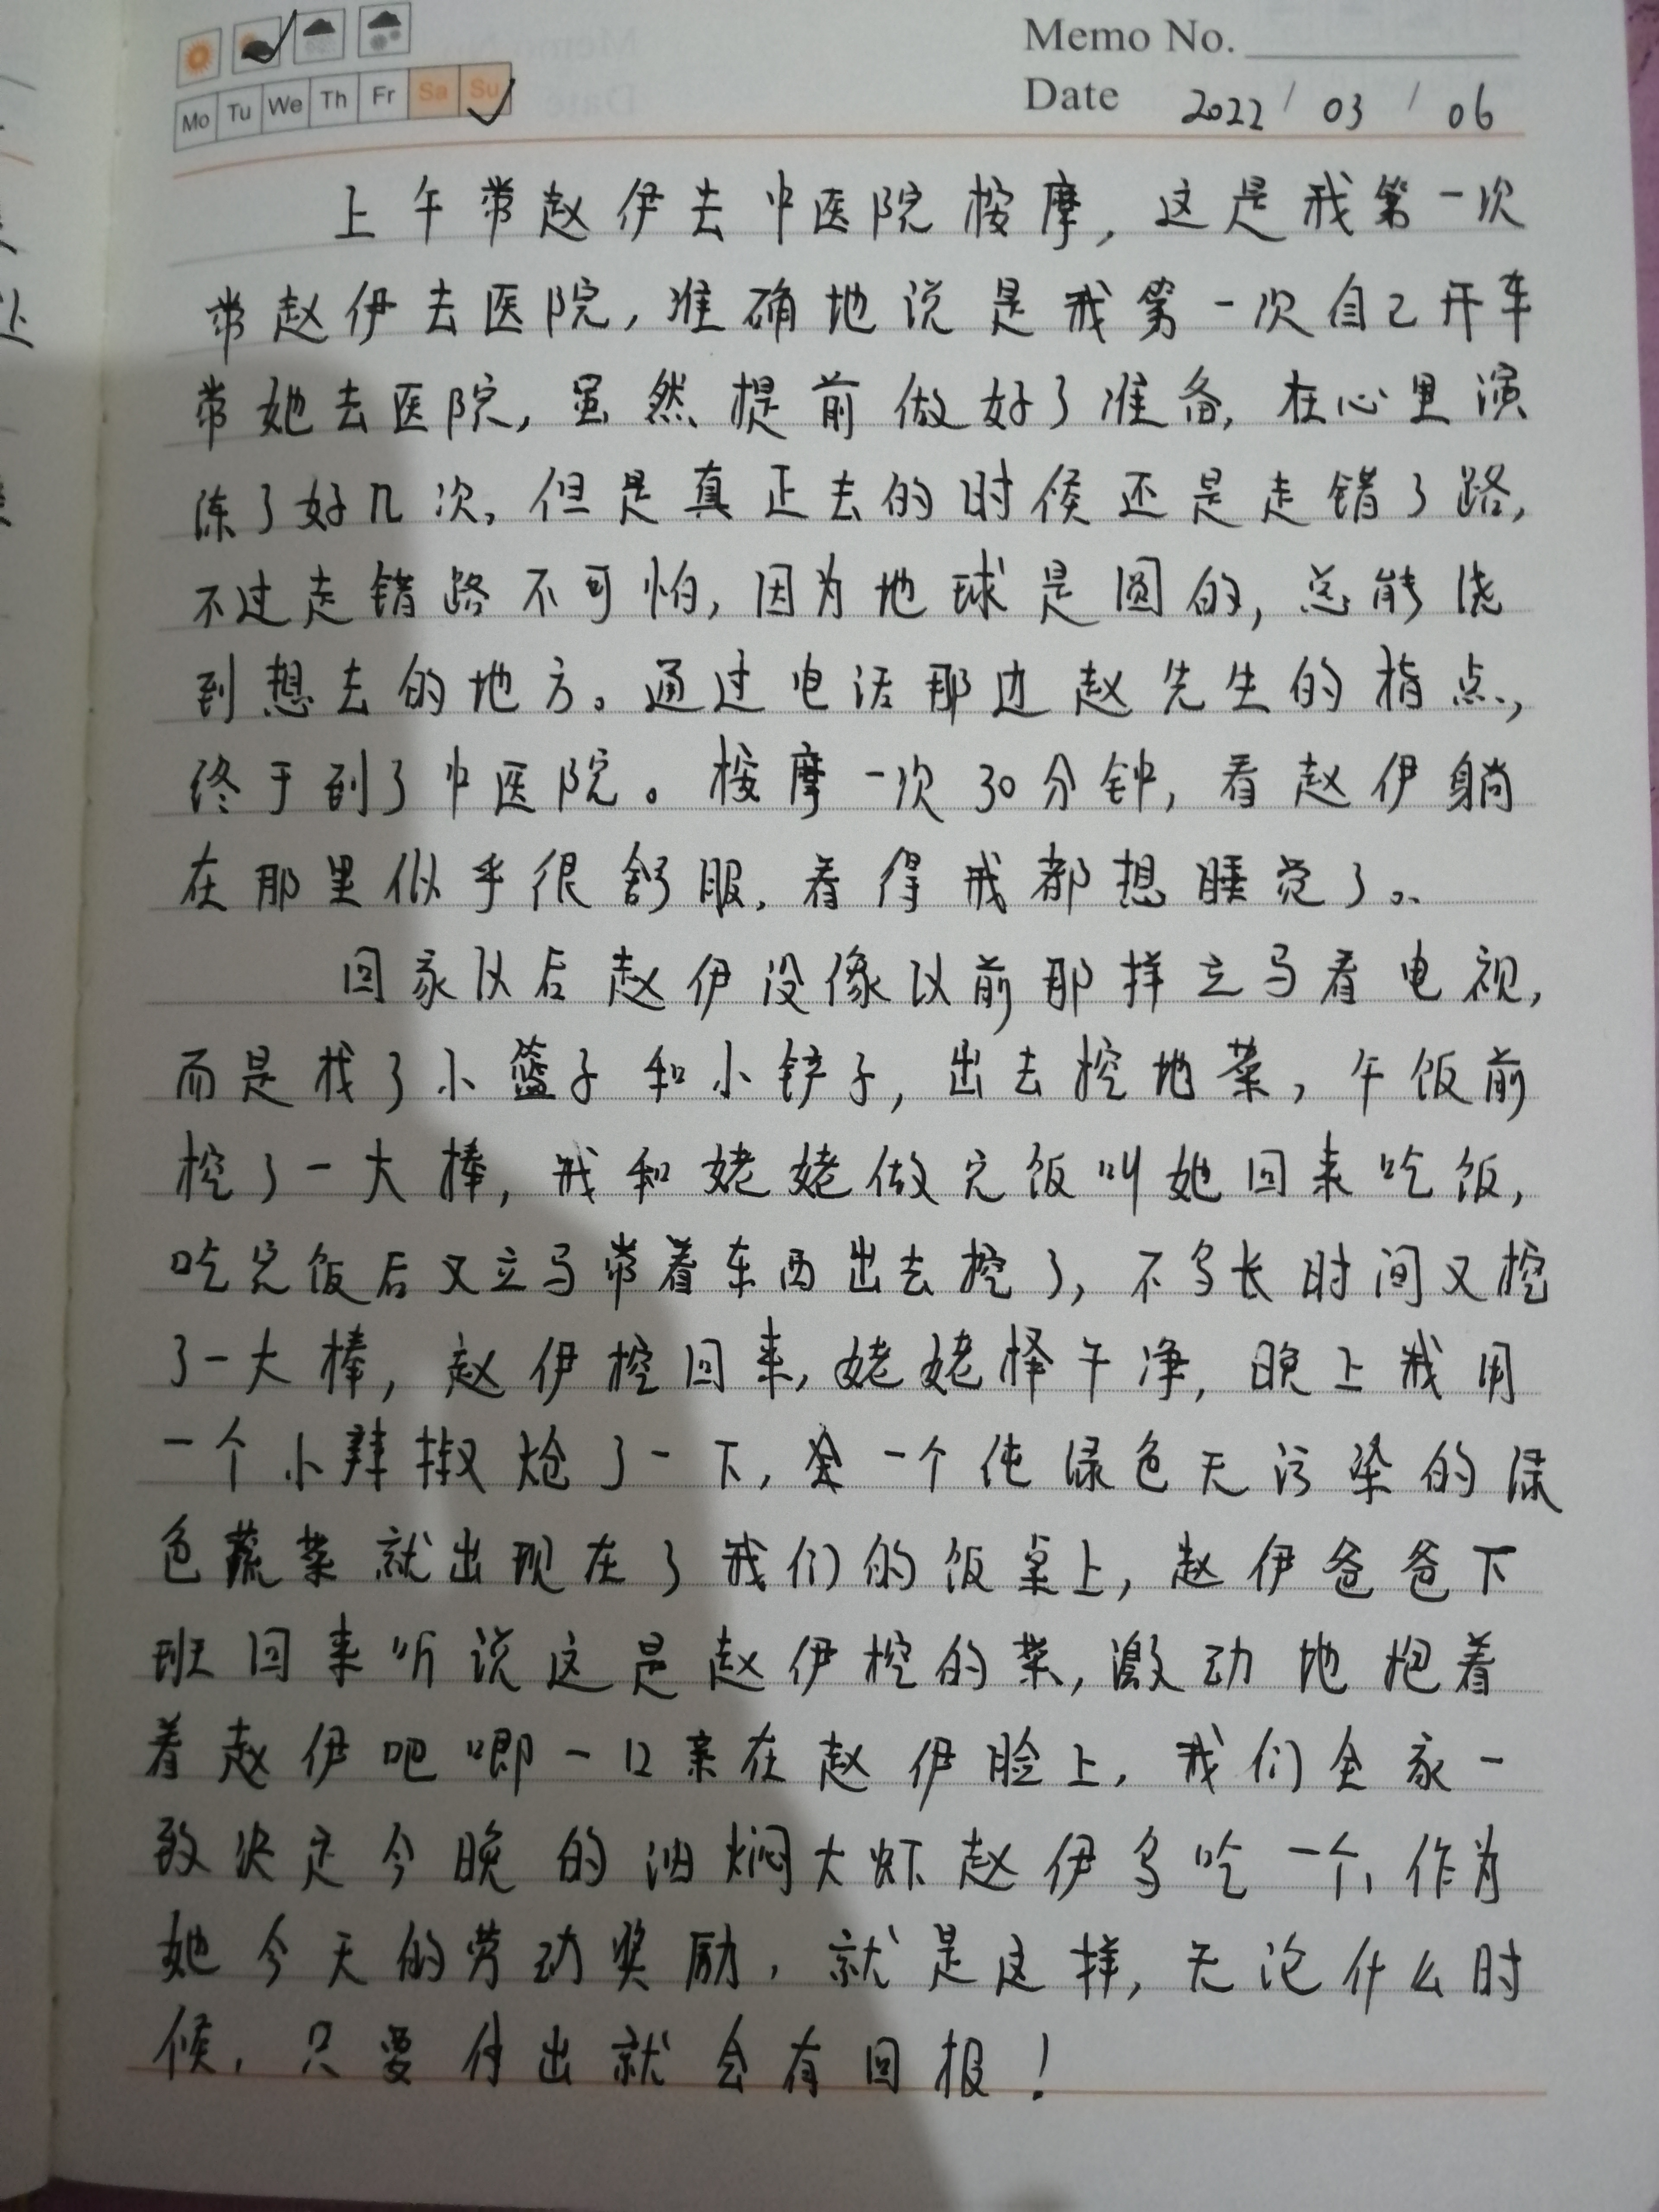 Memo No.
Mo Tu We Th Fr Sa Su
Date 2022 / 03 / 06
上午带赵伊去中医院按摩,这是我第一次
带赵伊去医院,准确地说是我第一次自己开车
带她去医院,虽然提前做好了准备,在心里演
练了好几次,但是真正去的时候还是走错了路,
不过走错路不可怕,因为地球是圆的,总能绕
到想去的地方。通过电话那边赵先生的指点,
终于到了中医院。按摩一次30分钟,看赵伊躺
在那里似乎很舒服,看得我都想睡觉了。
回家以后赵伊没像以前那样立马看电视,
而是找了小篮子和小铲子,出去挖地菜,午饭前
挖了一大捧,我和姥姥做完饭叫她回来吃饭,
吃完饭后又立马带着东西出去挖了,不多长时间又挖
了一大捧,赵伊挖回来,姥姥择干净,晚上我用
一个小辣椒炝了一下,一个纯绿色无污染的绿
色蔬菜就出现在了我们的饭桌上,赵伊爸爸下
班回来听说这是赵伊挖的菜,激动地抱着
着赵伊吧唧一口亲在赵伊脸上,我们全家一
致决定今晚的油焖大虾赵伊多吃一个,作为
她今天的劳动奖励,就是这样,无论什么时
候,只要付出就会有回报!